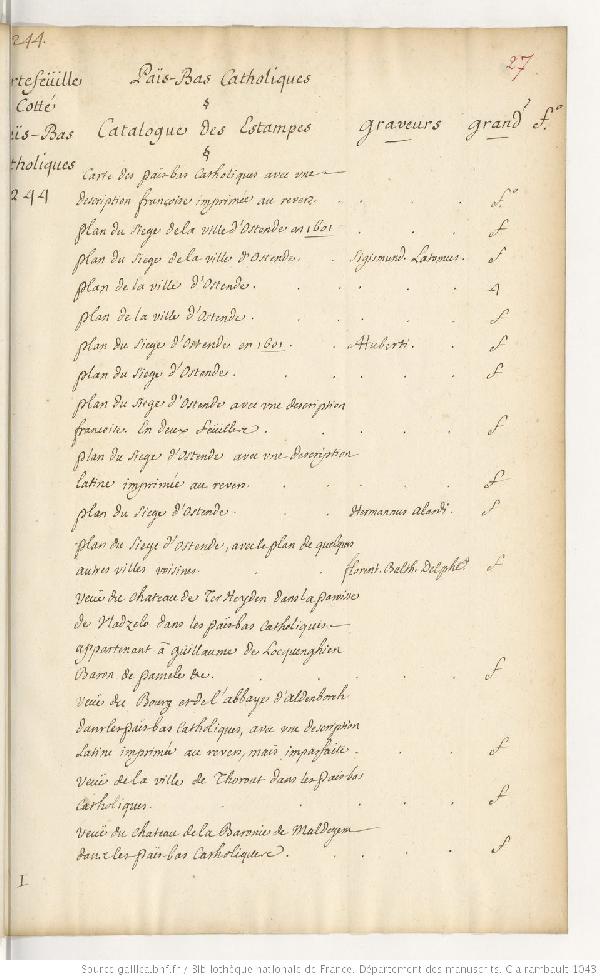 244.
27
rtefeüille
Cotté
ïs-Bas
tholiques
244
Païs-Bas Catholiques
§
Catalogue des Estampes
Graveurs
grand.r f.o
§
Carte des païs-bas Catholiques avec vne
description françoise imprimée au revers. f.o
plan du siege de la ville d'Ostende en 1601 f
plan du siege de la ville d'Ostende. Sigismund. Latomus. f
plan de la ville d'Ostende.
plan de la ville d'Ostende. f
plan du siege d'Ostende en 1601. Huberti. f
plan du siege d'Ostende. f
plan du siege d'Ostende avec vne description
françoise. En deux feüilles. f
plan du siege d'Ostende avec vne description
latine imprimée au revers. f
plan du siege d'Ostende. Hermannus Alardi. f
plan du siege d'Ostende, avec le plan de quelques
autres villes voisines. florent. Balth. Delph. f
veüe du chateau de Ter Heyden dans la paroisse
de Vladzelo dans les païs-bas Catholiques
appartenant à Guillaume de Locquenghien
Baron de pamele &c. f
veüe du Bourg et de l'abbaye d'Aldenborch
dans les païs-bas Catholiques, avec vne description
Latine imprimée au revers, mais imparfaite. f
veüe de la ville de Thorout dans les païs bas
Catholiques. f
veüe du chateau de la Baronie de Maldegem
dans les païs-bas Catholiques. f
I
Source gallica.bnf.fr / Bibliothèque nationale de France. Département des manuscrits. Clairambault 1043